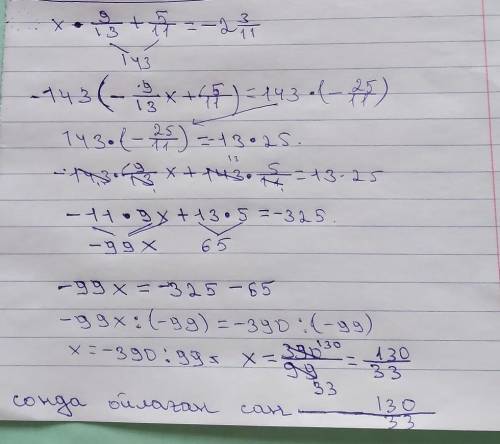 x • 9/13 + 5/11 = -2 3/11
143
-143(-9/13 x + 5/11) = 143 • (-25/11)
143 • (-25/11) = -13 • 25.
-143 • 9/13 x + 143 13 • 5/11 = 13 • 25
-11 • 9x + 13 • 5 = -325.
-99x 65
-99x = -325 - 65
-99x : (-99) = -390 : (-99)
x = -390 : 99 x = 390 130 / 99 33 = 130/33
сонда ойлаған сан — 130/33